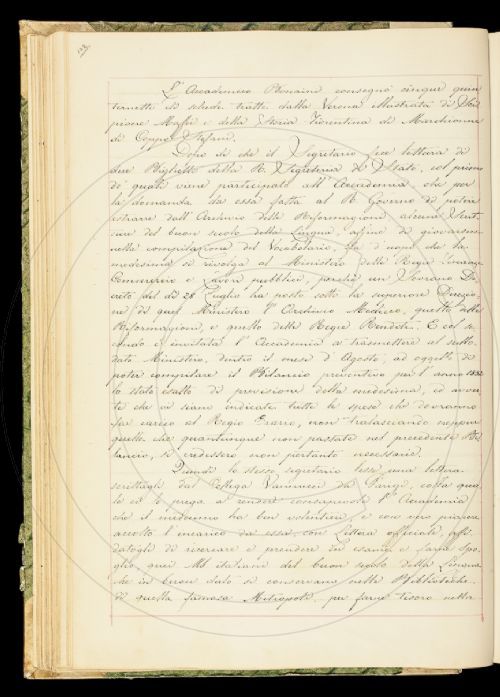 L'Accademico Bonaini consegnò cinque quin
ternetti di schede tratte dalla Verona Illustrata di Sci
pione Maffei e della Storia Fiorentina di Marchionne
di Coppo Stefani.
Dopo di che il Segretario fece lettura di
due Biglietti della R. Segreteria di Stato, col primo
de' quali viene participato all'Accademia che per
la domanda da essa fatta al R. Governo di potere
estrarre dall'Archivio delle Riformagioni alcune Scrit
ture del buon secolo della Lingua, affine di giovarsene
nella compilazione del Vocabolario, fa d'uopo che la
medesima si rivolga al Ministero delle Regie Finanze
Commercio e Lavori pubblici, poichè un Sovrano De
creto del dì 28 Luglio ha posto sotto la superiore Direzio
ne di quel Ministero l'Archivio Mediceo, quello delle
Riformagioni, e quello delle Regie Rendite. E col se
condo è invitata l'Accademia a trasmettere al sullo
dato Ministero, dentro il mese d'Agosto, ad oggetto di
poter compilare il Bilancio preventivo per l'anno 1853
lo stato esatto di previsione della medesima, ed avver
te che vi siano indicate tutte le spese che dovranno
far carico al Regio Erario, non tralasciando neppure
quelle che quantunque non passate nel precedente Bi
lancio, si credessero non pertanto necessarie.
Quindi lo stesso segretario lesse una lettera
scrittagli dal Collega Vannucci da Parigi, colla qua
le ei lo prega a rendere consapevole l'Accademia
che il medesimo ha ben volentieri e con vero piacere
accolto l'incarico da essa con Lettera officiale affi
datogli di ricercare e prendere in esame e farne spo
glio quei MS italiani del buon secolo della Lingua
che in buon dato si conservano nelle Biblioteche
di questa famosa Metropoli per farne tesoro nella